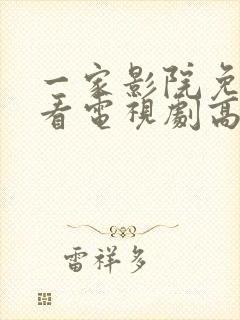 一家影院免
看電視劇高
雷祥多